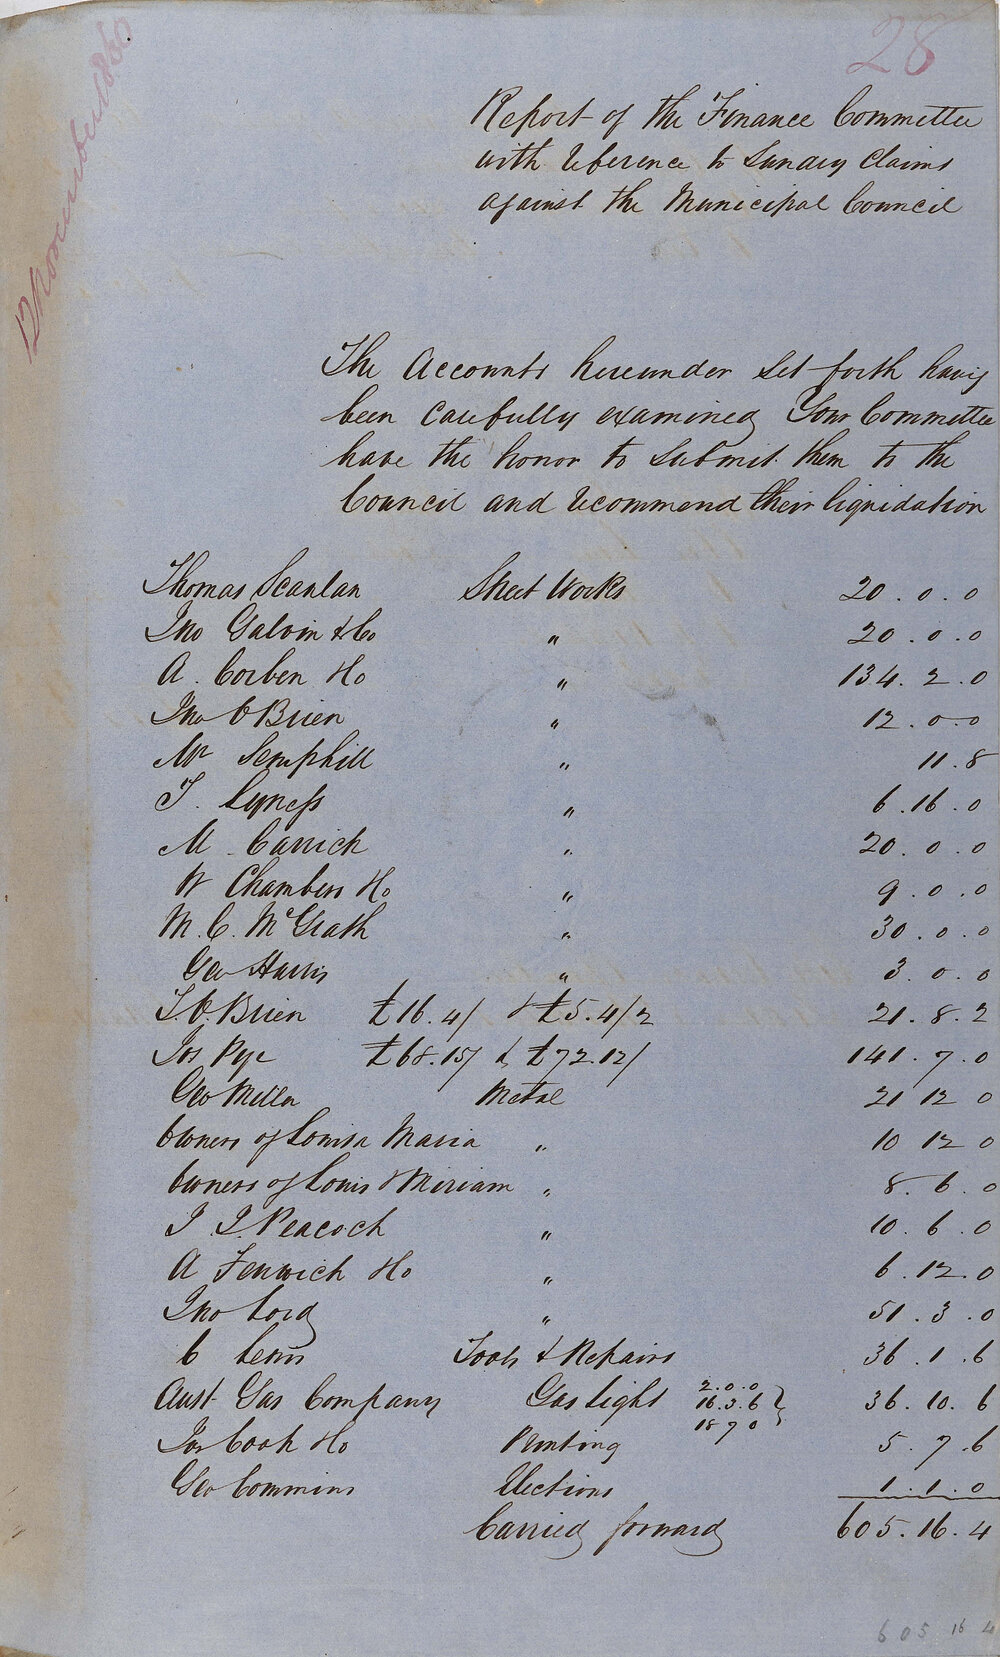 28
12 November 1860
Report of the Finance Committee
with reference to Sundry Claims
against the Municipal Council
The Accounts hereunder set forth having
been carefully examined Your Committee
have the honor to submit them to the
Council and recommend their liquidation
Thomas Scanlan Street Works 20 . 0 . 0
Jno Galvin & Co " 20 . 0 . 0
A . Corben Ho " 134 . 2 . 0
Jno O Brien " 12 . 0 - 0
Mr Semphill " 11 . 8
T . Lyness " 6 . 16 . 0
M . Carrick " 20 . 0 . 0
W Chambers Ho " 9 . 0 . 0
M. C. McGrath " 30 . 0 . 0
Geo Harris " 3 . 0 . 0
T. O. Brien £16 . 4/ & £5 . 4/2 21 . 8 . 2
Jos Pye £68 . 15/ & £72 . 12/ 141 . 7 . 0
Geo Miller Metal 21 12 0
Owners of Louisa Maria " 10 12 0
Owners of Louis & Miriam " 8 . 6 . 0
J. J. Peacock " 10 . 6 . 0
A Fenwick Ho " 6 . 12 . 0
Jno Lord " 51 . 3 . 0
C Lewis Tools & Repairs 36 . 1 . 6
Aust Gas Company Gas Light 2 . 0 . 0 16 . 3 . 6 18 7 0 } 36 . 10 . 6
Jos Cook Ho Printing 5 . 7 . 6
Geo Commins Elections 1 . 1 . 0
Carried forward 605 . 16 . 4
605 16 4